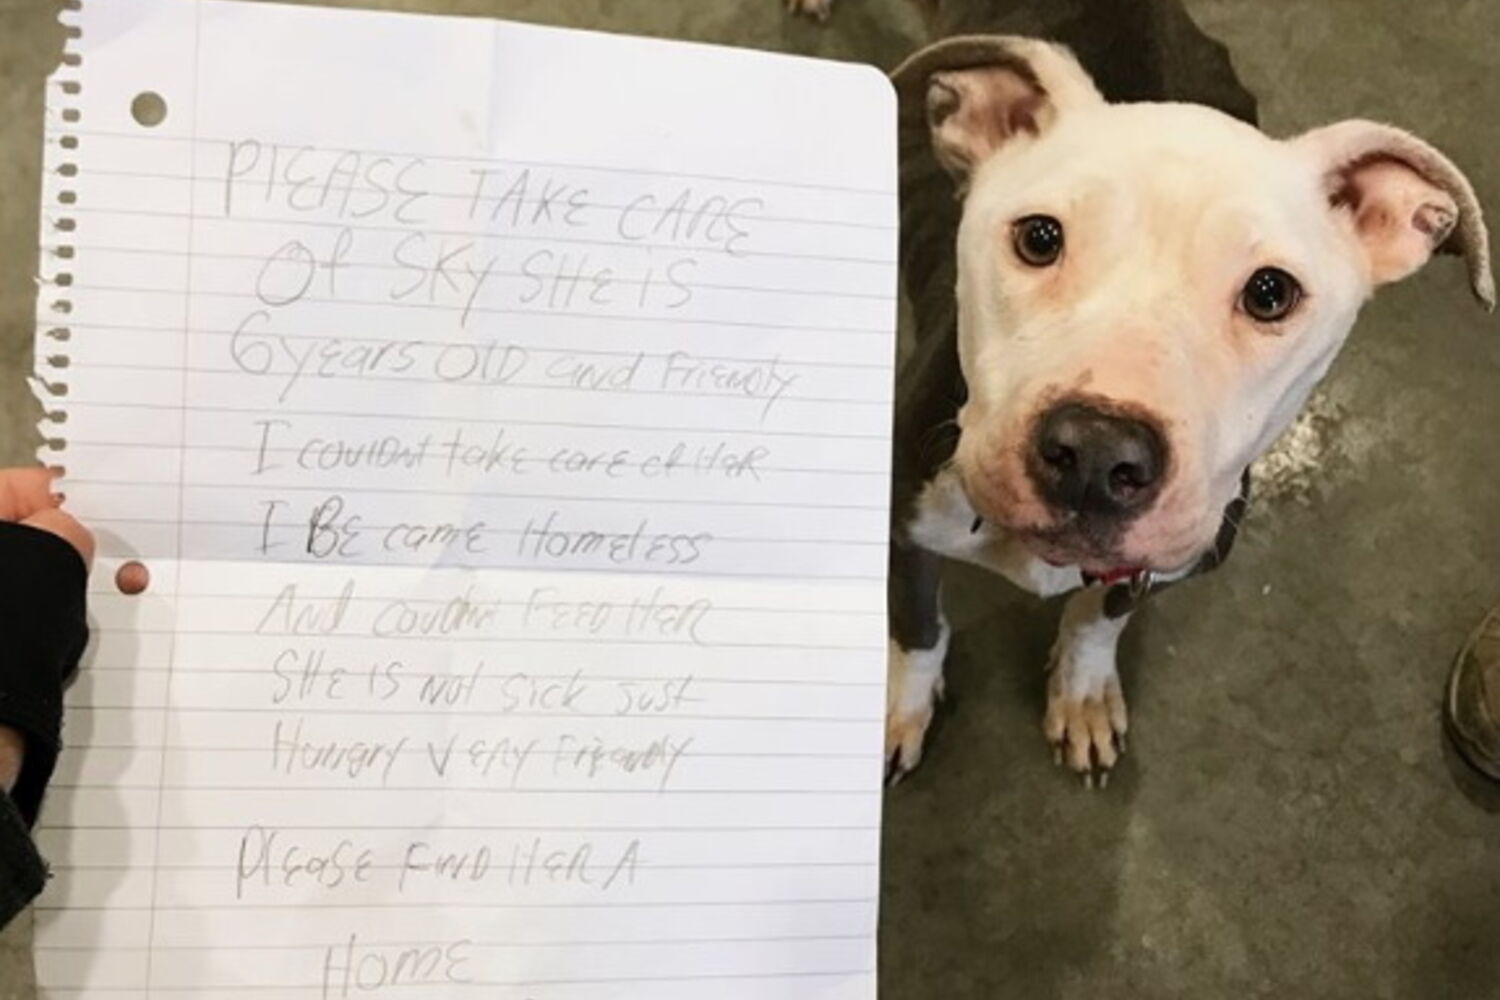 PlEASE TAKE CARE
Of SKY SHE iS
6 yEars OlD and FriENDly
I couldnt take care of HER
I BE camE HomelEss
And couldn FEED HER
SHE IS not Sick Just
Hungry VERY FriEndly
PlEaSE FIND HER A
HomE